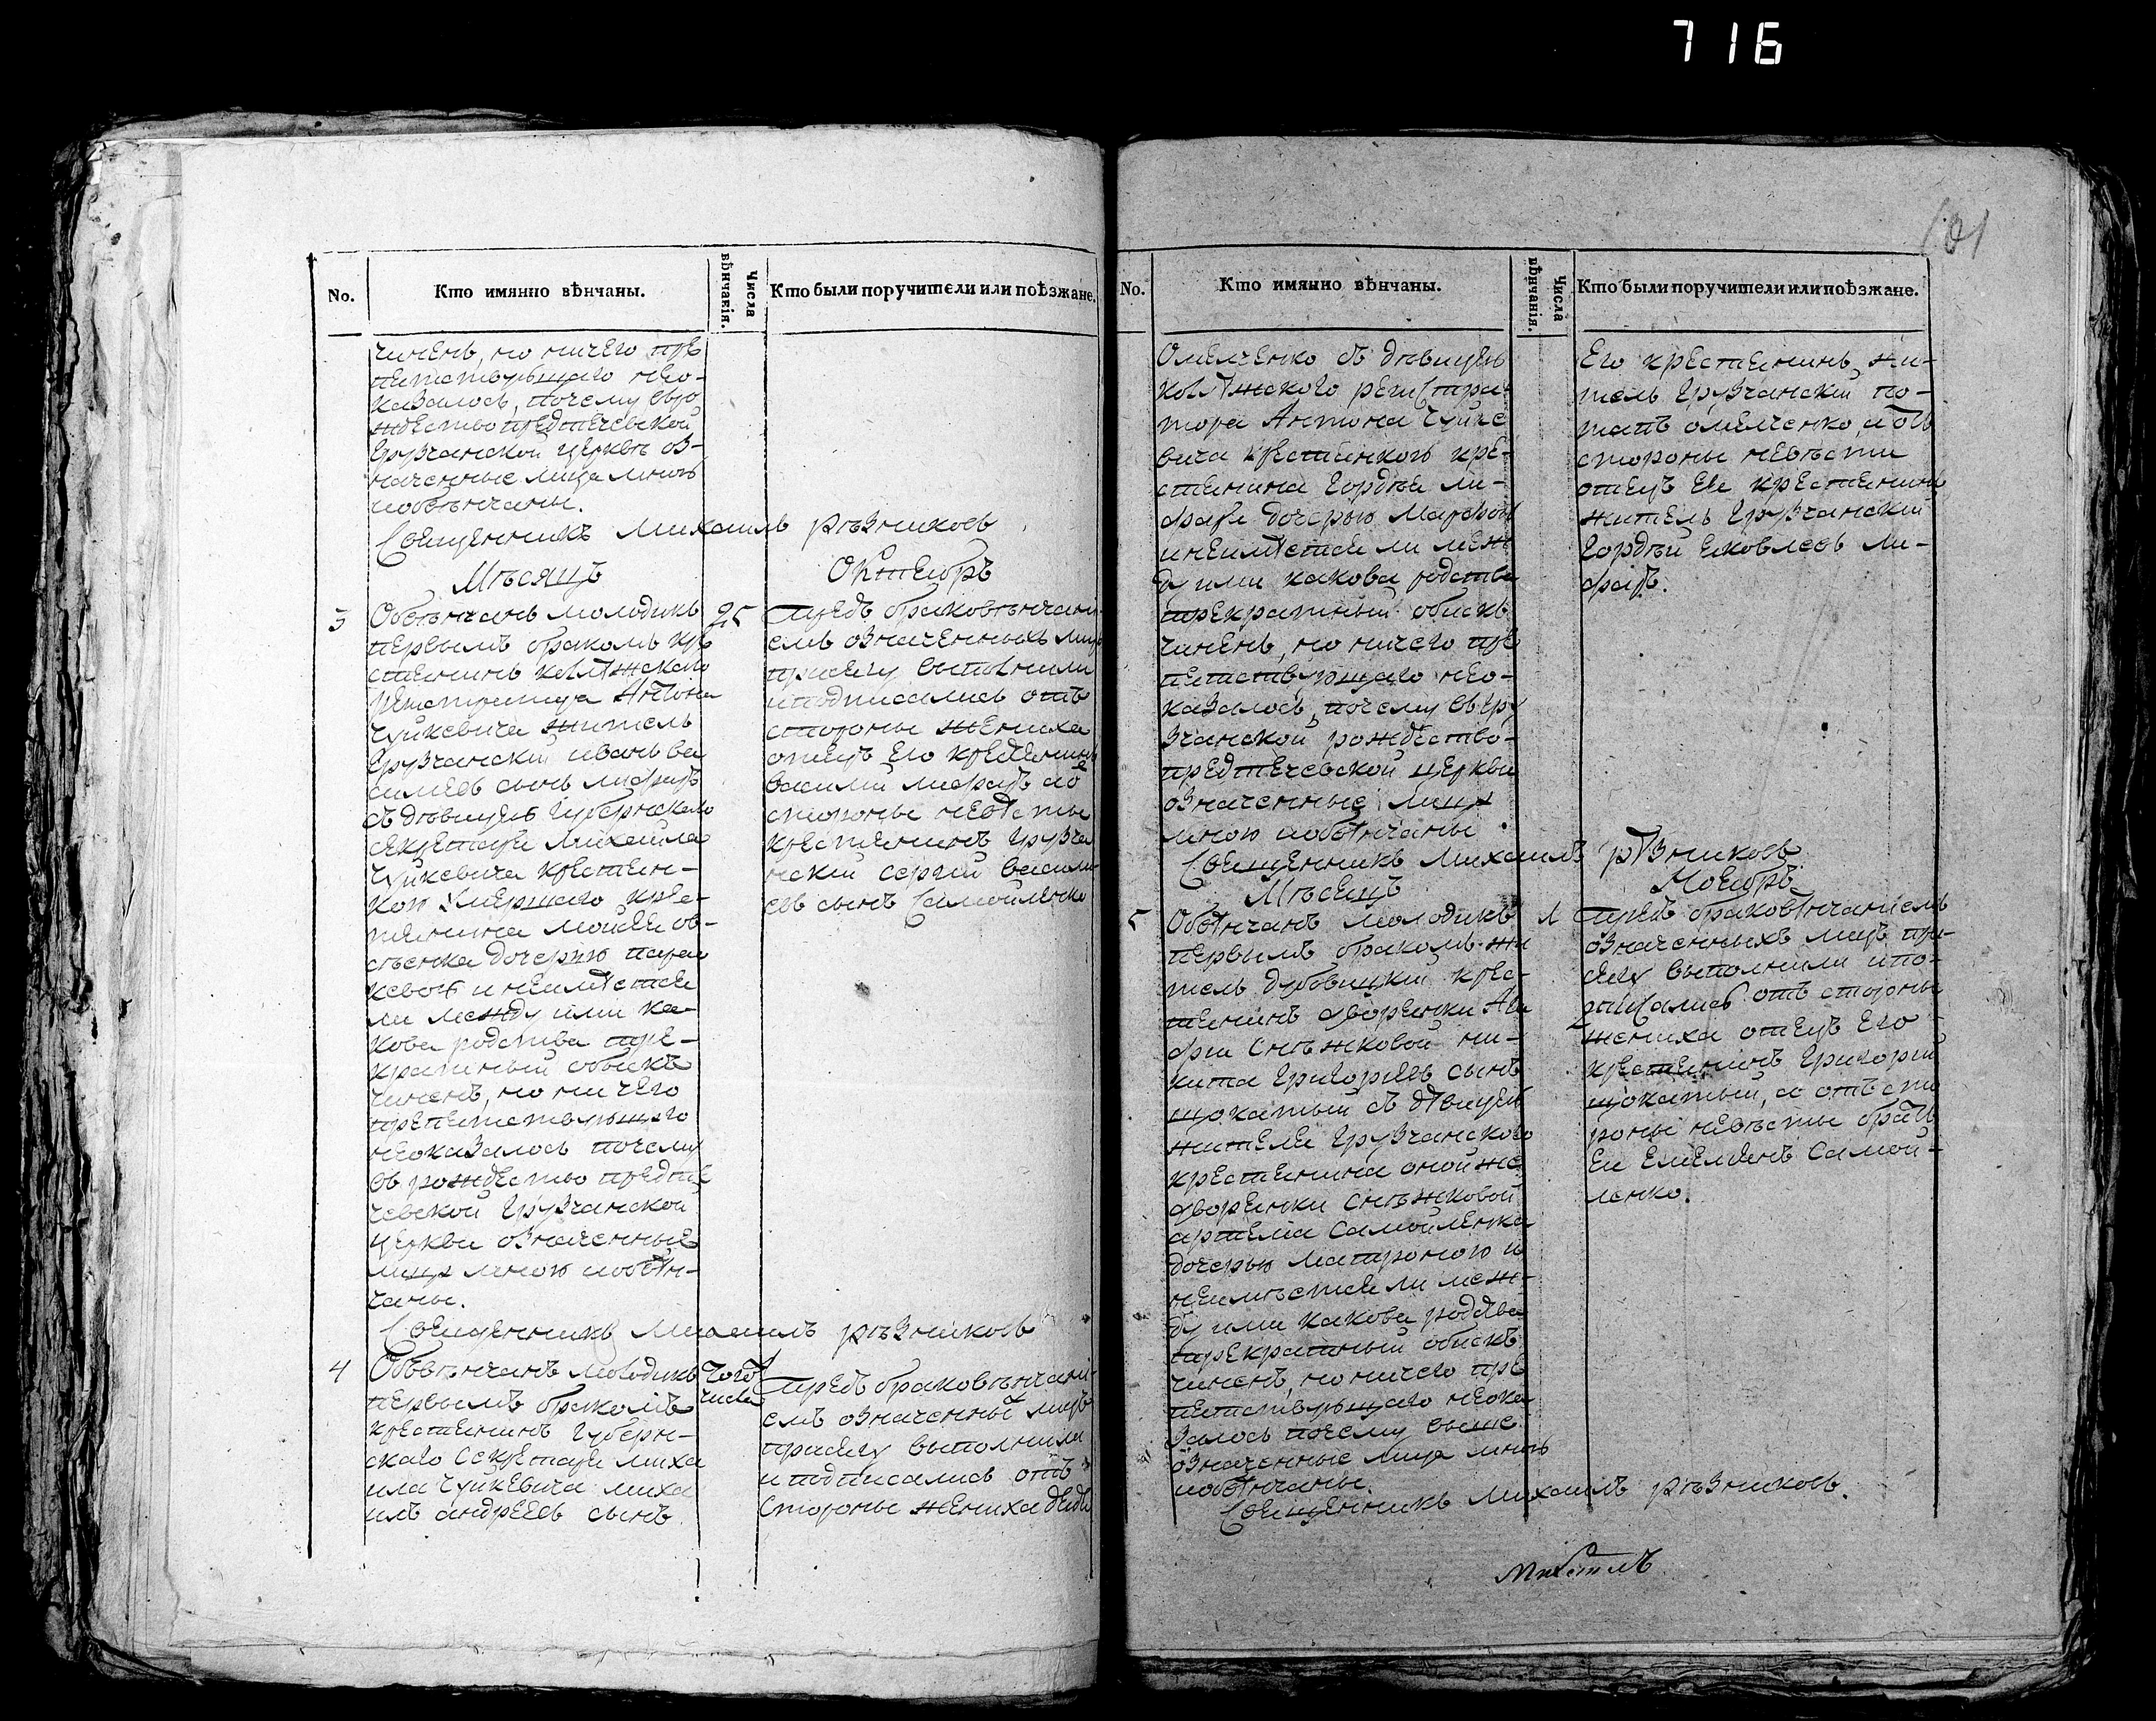 716
101
No.
Кто имянно вѣнчаны.
Числа вѣнчанія.
Кто были поручители или поѣзжане.
чиненъ, но ничего пре
пятствующаго нео-
казалось, почему въ ро
ждество предтечевской
Грузчанской церквѣ оз-
наченные лица мною
иобвѣнчаны.
Священникъ Михаилъ рѣзниковъ
Мѣсяцъ
Октябрь
3
Обвѣнчанъ молодикъ
первымъ бракомъ кре
стянинъ колѣжскаго
Антона
Чуйкевича житель
Грузчанскій иванъ ва
силиевъ сынъ
съ дѣвицею Губернскаго
секретаря михаила
Чуйкевича крестян-
кою умершаго кре-
стянина мойсея ов-
сѣенка дочерью параc
кевою и неимѣется
ли между ими ка-
кова родства тре-
кратный обыскъ
чиненъ, но ничего
препятствующаго
неоказалось почему
въ рождество предте
чевской Грузчанской
церкви означенные
лица мною иобвѣн-
чаны.
25
Предъ браковѣнчани-
емъ означенныхъ лицъ
присягу выполнили
иподписались отъ
стороны жениха
отецъ его крестянинъ
Василий
стороны невѣсты
крестянинъ Грузча
нскій сергій васили
евъ сынъ Самойленко
Священникъ Михаилъ рѣзниковъ
4
Обвѣнчанъ молодикъ
первымъ бракомъ
крестянинъ Губерн-
скаго Секретаря миха
ила Чуйкевича миха
илъ андреевъ сынъ
Того
числа
Предъ браковѣнчани-
емъ означенных лицъ
присягу выполнили
и подписались отъ
стороны жениха дядя
No.
Кто имянно вѣнчаны.
Числа вѣнчанія.
Кто были поручители или поѣзжане.
Омелченко съ дѣвицею
колѣжского регистра
тора Антона Чуйке
вича крестянкою кре-
стянина Гордѣя ли-
дочерью Марфою
инеимѣется ли меж
ду ими какова родства
трекратный обискъ
чиненъ, но ничего пре
пятствующаго нео-
казалось, почему въ Гру
зчанской рождество-
предтечевской церкви
означенные лица
мною иобвѣнчаны.
Его крестянинъ жи-
тель Грузчанский по-
тапъ омелченко, а отъ
стороны невѣсти
отецъ ея крестянинъ
житель Грузчанский
Гордѣй яковлевъ ли-
Священникъ Михаилъ рѣзниковъ
Мѣсецъ
Ноябрь
5
Обвѣнчанъ молодикъ
первымъ бракомъ жи
тель дубовицкий крес-
тянинъ дворянки Ага
фии Снѣжковой ни-
кита Григорьевъ сынъ
щокатый съ дѣвицею
жителя Грузчанского
крестянина оной же
дворянки Снѣжковой
артема Самойленка
дочерью матроною и
неимѣется ли меж-
ду ими какова родства
трекратный обискъ
чиненъ, но ничего пре
пятствующаго неока
залось почему выше
означенные лица мною
иобвѣнчаны.
1
Предъ браковѣнчаніемъ
означенныхъ лицъ при-
сягу выполнили ипо-
дписались отъ стороны
жениха отецъ его
крестянинъ Григорий
щокатый, а отъ сто
роны невѣсты братъ
ея емелянъ Самой-
ленко.
Священникъ Михаилъ рѣзниковъ.